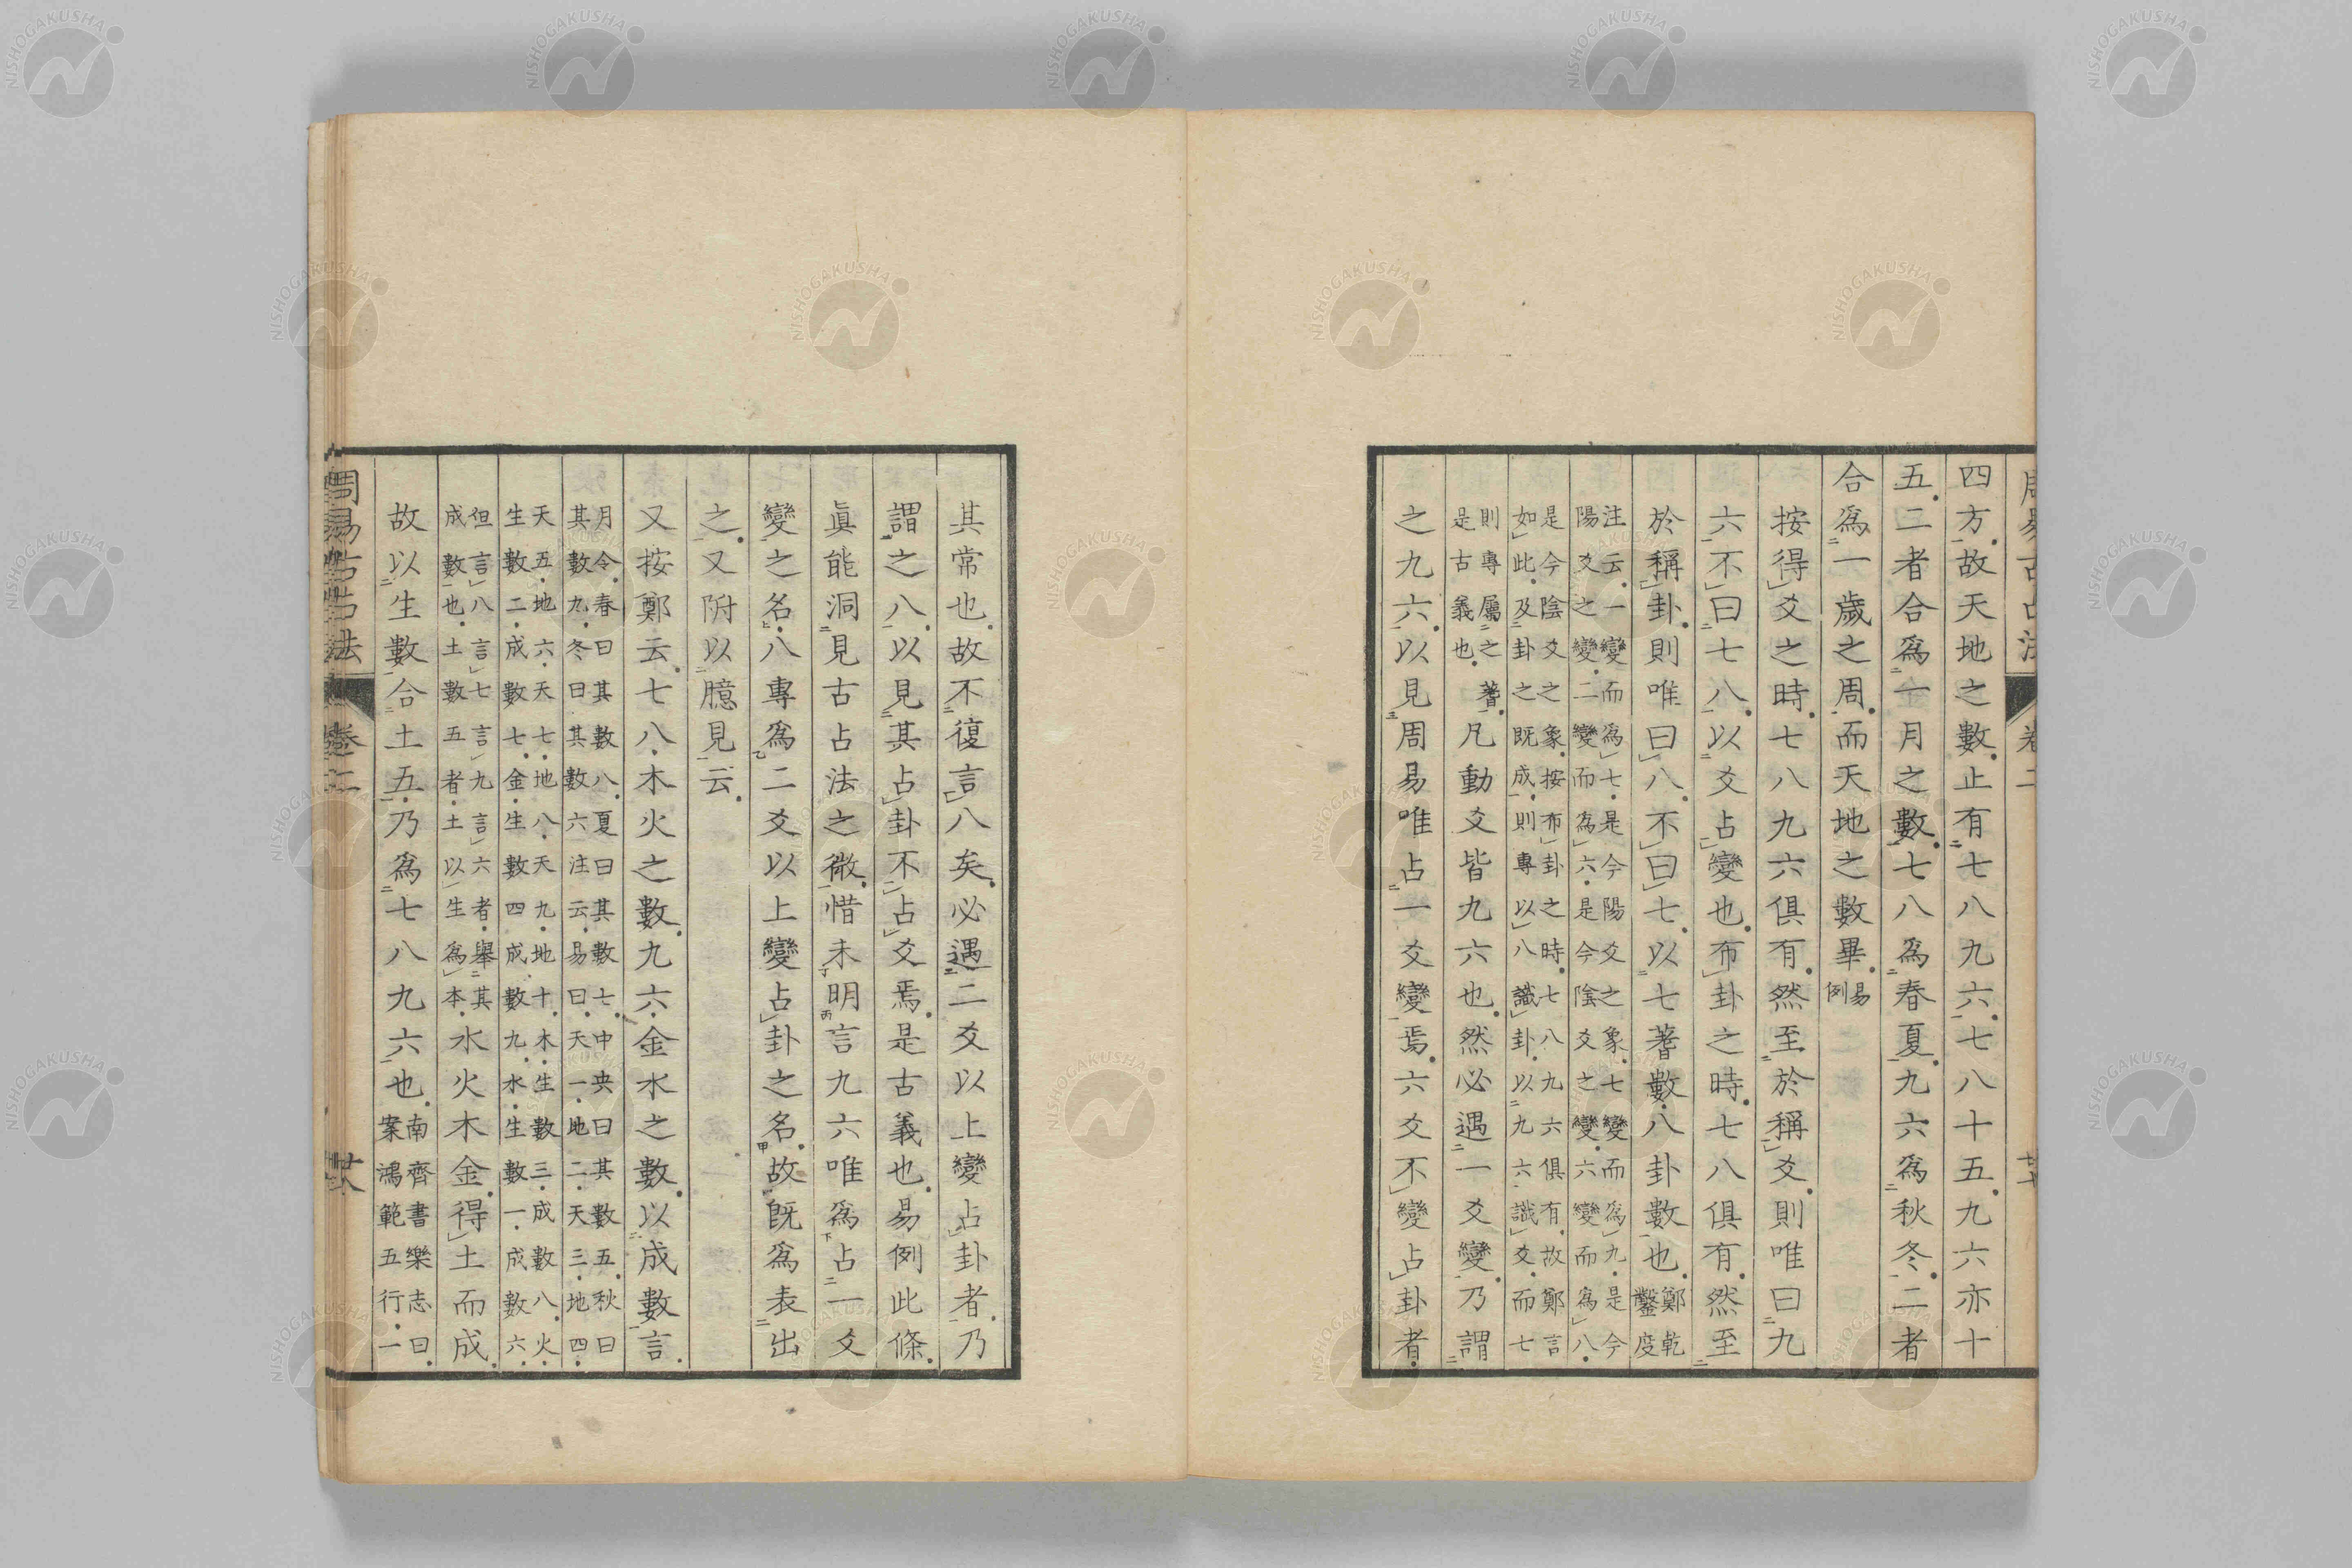 四方故天地之數止有七八九六七八十五九六亦十
五二者合為一月之數七八為春夏九六為秋冬二者
合為一歲之周而天地之數畢易例
按得爻之時七八九六俱有然至於稱爻則唯曰九
六不曰七八以爻占變也布卦之時七八俱有然至
於稱卦則唯曰八不曰七以七蓍數八卦數也鄭乾鑿度
注云一變而為七是今陽爻之象七變而為九是今
陽爻之變二變而為六是今陰爻之變六變而為八
是今陰爻之象按布卦之時七八九六俱有故鄭言
如此及卦之既成則專以八識卦以九六識爻而七
則專屬之蓍
是古義也
凡動爻皆九六也然必遇一爻變乃謂
之九六以見周易唯占一爻變焉六爻不變占卦者
其常也故不復言八矣必遇二爻以上變占卦者乃
謂之八以見其占卦不占爻焉是古義也易例此條
眞能洞見古占法之微惜未明言九六唯為占一爻
變之名八專為二爻以上變占卦之名故既為表出
之又附以臆見云
又按鄭云七八木火之數九六金水之數以成數言
月令春曰其數八夏曰其數七中央曰其數五秋曰
其數九冬曰其數六注云易曰天一地二天三地四
天五地六天七地八天九地十木生數三成數八火
生數二成數七金生數四成數九水生數一成數六
但言八言七言九言六者舉其
成數也土數五者土以生為本
水火木金得土而成
故以生數合土五乃為七八九六也南齊書樂志曰
案鴻範五行一
周易古占法
卷二
廿八
NISHOGAKUSHA